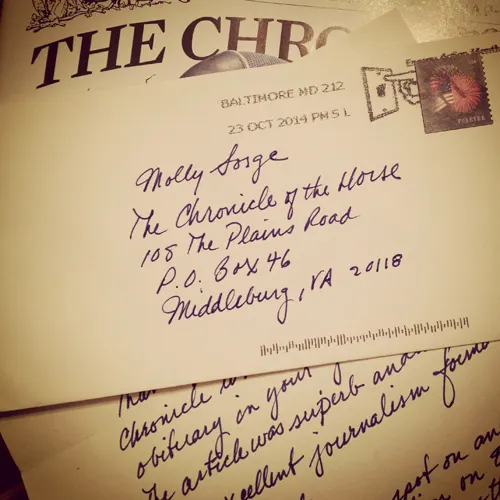 THE CHRO
BALTIMORE MD 212
23 OCT 2014 PM 5 L
FOREVER
Molly Sorge
The Chronicle of the Horse
108 The Plains Road
P.O. Box 46
Middleburg, VA 20118
Chronicle
obituary in your
The article was superb and
excellent journalism
spot on an
on